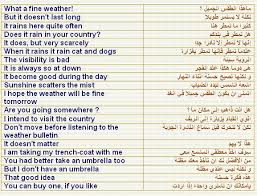 What a fine weather! ماهذا الطقس الجميل !
But it doesn't last long لكنه لا يستمر طويلا
It rains here quite often كثيرا ما تمطر هنا
Does it rain in your country? هل تمطر في بلدكم
It does, but very scarcely إلا نادرا جدا
When it rains it rain cat and dogs عندما تمطر بغزارة
The visibility is bad الرؤية
It is always so at down هي دوما هكذا عند الفجر
It become good during the day و لكنها تصبح حسنة أثناء النهار
Sunshine scatters the mist أشعة الشمس تبدد الضباب
I hope the weather will be fine tomorrow أن يكون الطقس جميلا في الغد
Are you going somewhere ? هل أنت ذاهب إلى مكان ما ؟
I intend to visit the country زيارة الريف
Don't move before listening to the weather bulletin لا تتحرك قبل سماع النشرة الجوية
It doesn't matter هذا لا يهم
I am taking my trench-coat with me سوف آخذ معطفي معي
You had better take an umbrella too من الأفضل لك أن تأخذ معك مظلة
But I don't have an umbrella مظلة
That good idea هذه فكرة حسنة
You can buy one, if you like يمكنك أن تشتري واحدة إذا أردت